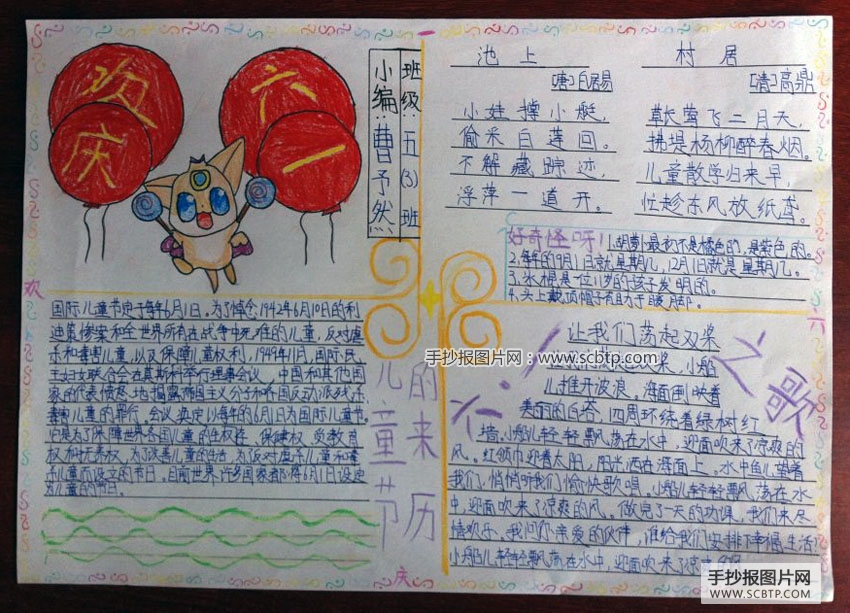 欢
庆
六
一
班级：五(3)班
小编：曹予然
池上
[唐]白居易
小娃撑小艇，
偷采白莲回。
不解藏踪迹，
浮萍一道开。
村居
[清]高鼎
草长莺飞二月天，
拂堤杨柳醉春烟。
儿童散学归来早，
忙趁东风放纸鸢。
好奇怪呀！
1.胡萝卜最初不是橘色的，是紫色的。
2.每年的9月1日就是星期几，12月1日就是星期几。
3.冰棍是一位11岁的孩子发明的。
4.头上戴顶帽子有助于暖身部。
国际儿童节定于每年6月1日。为了悼念1942年6月10日的利
迪策惨案和全世界所有在战争中死难的儿童，反对虐
杀和毒害儿童，以及保障儿童权利，1949年11月，国际民
主妇女联合会在莫斯科举行理事会议，中国和其他国
家的代表愤怒地揭露帝国主义分子和各国反动派残杀、
毒害儿童的罪行。会议决定以每年的6月1日为国际儿童节。
它是为了保障世界各国儿童的生权存、保健权、受教育
权和抚养权，为了改善儿童的生活，为了反对虐杀儿童和毒
杀儿童而设立的节日。目前世界许多国家都将6月1日设定
为儿童的节日。
儿童节
的来历
六一之歌
让我们荡起双桨
让我们荡起双桨，小船
儿推开波浪。海面倒映着
美丽的白塔，四周环绕着绿树红
墙。小船儿轻轻飘荡在水中，迎面吹来了凉爽的
风。红领巾迎着太阳，阳光洒在海面上。水中鱼儿望着
我们，悄悄听我们愉快歌唱。小船儿轻轻飘荡在水
中，迎面吹来了凉爽的风。做完了一天的功课，我们来尽
情欢乐。我问你亲爱的伙伴，谁给我们安排下幸福生活？
小船儿轻轻飘荡在水中，迎面吹来了凉爽的风。
欢
六
庆
手抄报图片网：www.scbtp.com
手抄报图片网
WWW.SCBTP.COM